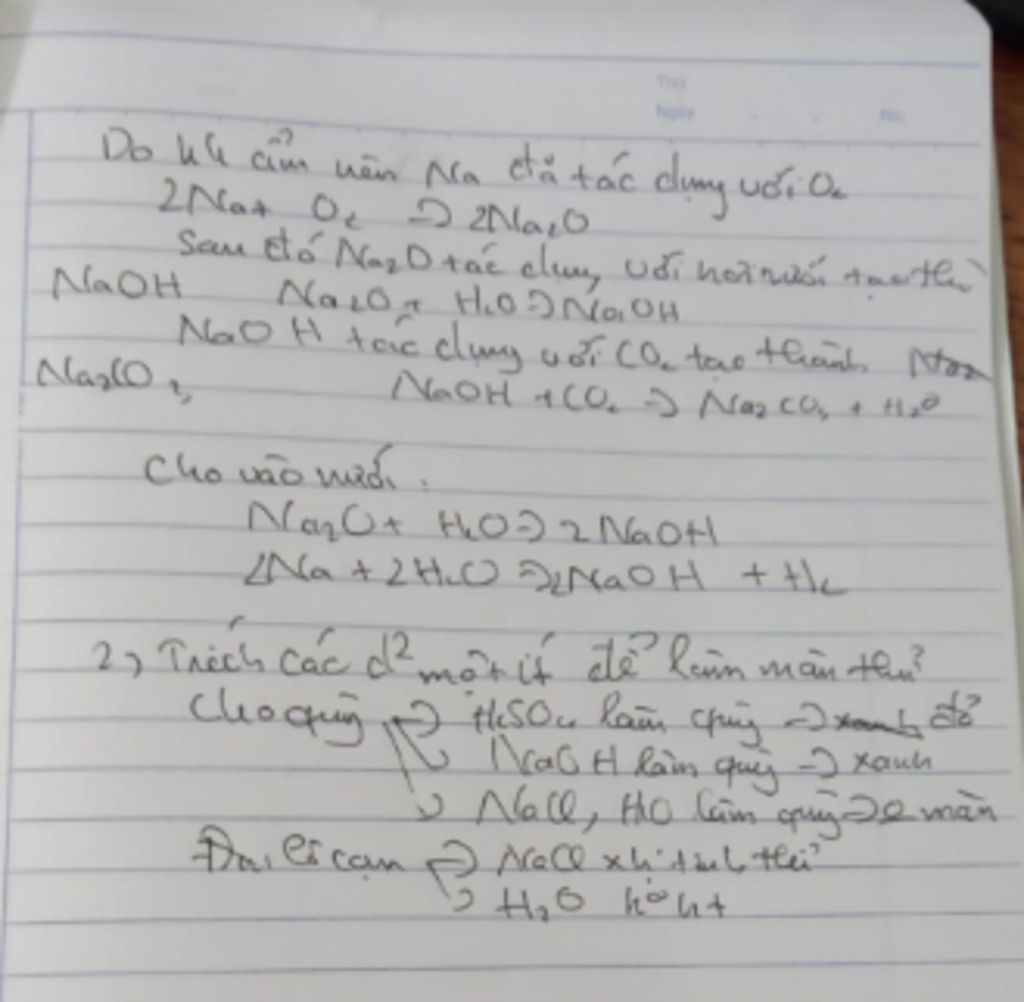 Thứ
Ngày . . No.
Do kk ẩm nên Na đã tác dụng với O₂
2Na+ O₂ → 2Na₂O
Sau đó Na₂O tác dụng với hơi nước tạo th
NaOH Na₂O + H₂O → NaOH
NaOH tác dụng với CO₂ tạo thành
Na₂CO₃ NaOH + CO₂ → Na₂CO₃ + H₂O
Cho vào nước.
Na₂O + H₂O → 2NaOH
2Na + 2H₂O → 2NaOH + H₂
2, Trích các d² một ít để làm mẫu thử
Cho quỳ → H₂SO₄ làm quỳ → đỏ
→ NaOH làm quỳ → xanh
→ NaCl, làm quỳ → màn
cạn → NaCl
→ H₂O k° ht